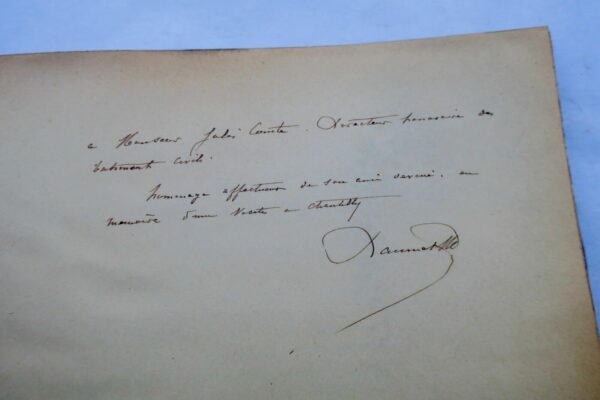 a Monsieur Jules Comte. Directeur honoraire des
batiments civils.
hommage affectueux de son ami dévoué. en
memoire d'une visite a Chantilly
Daumet